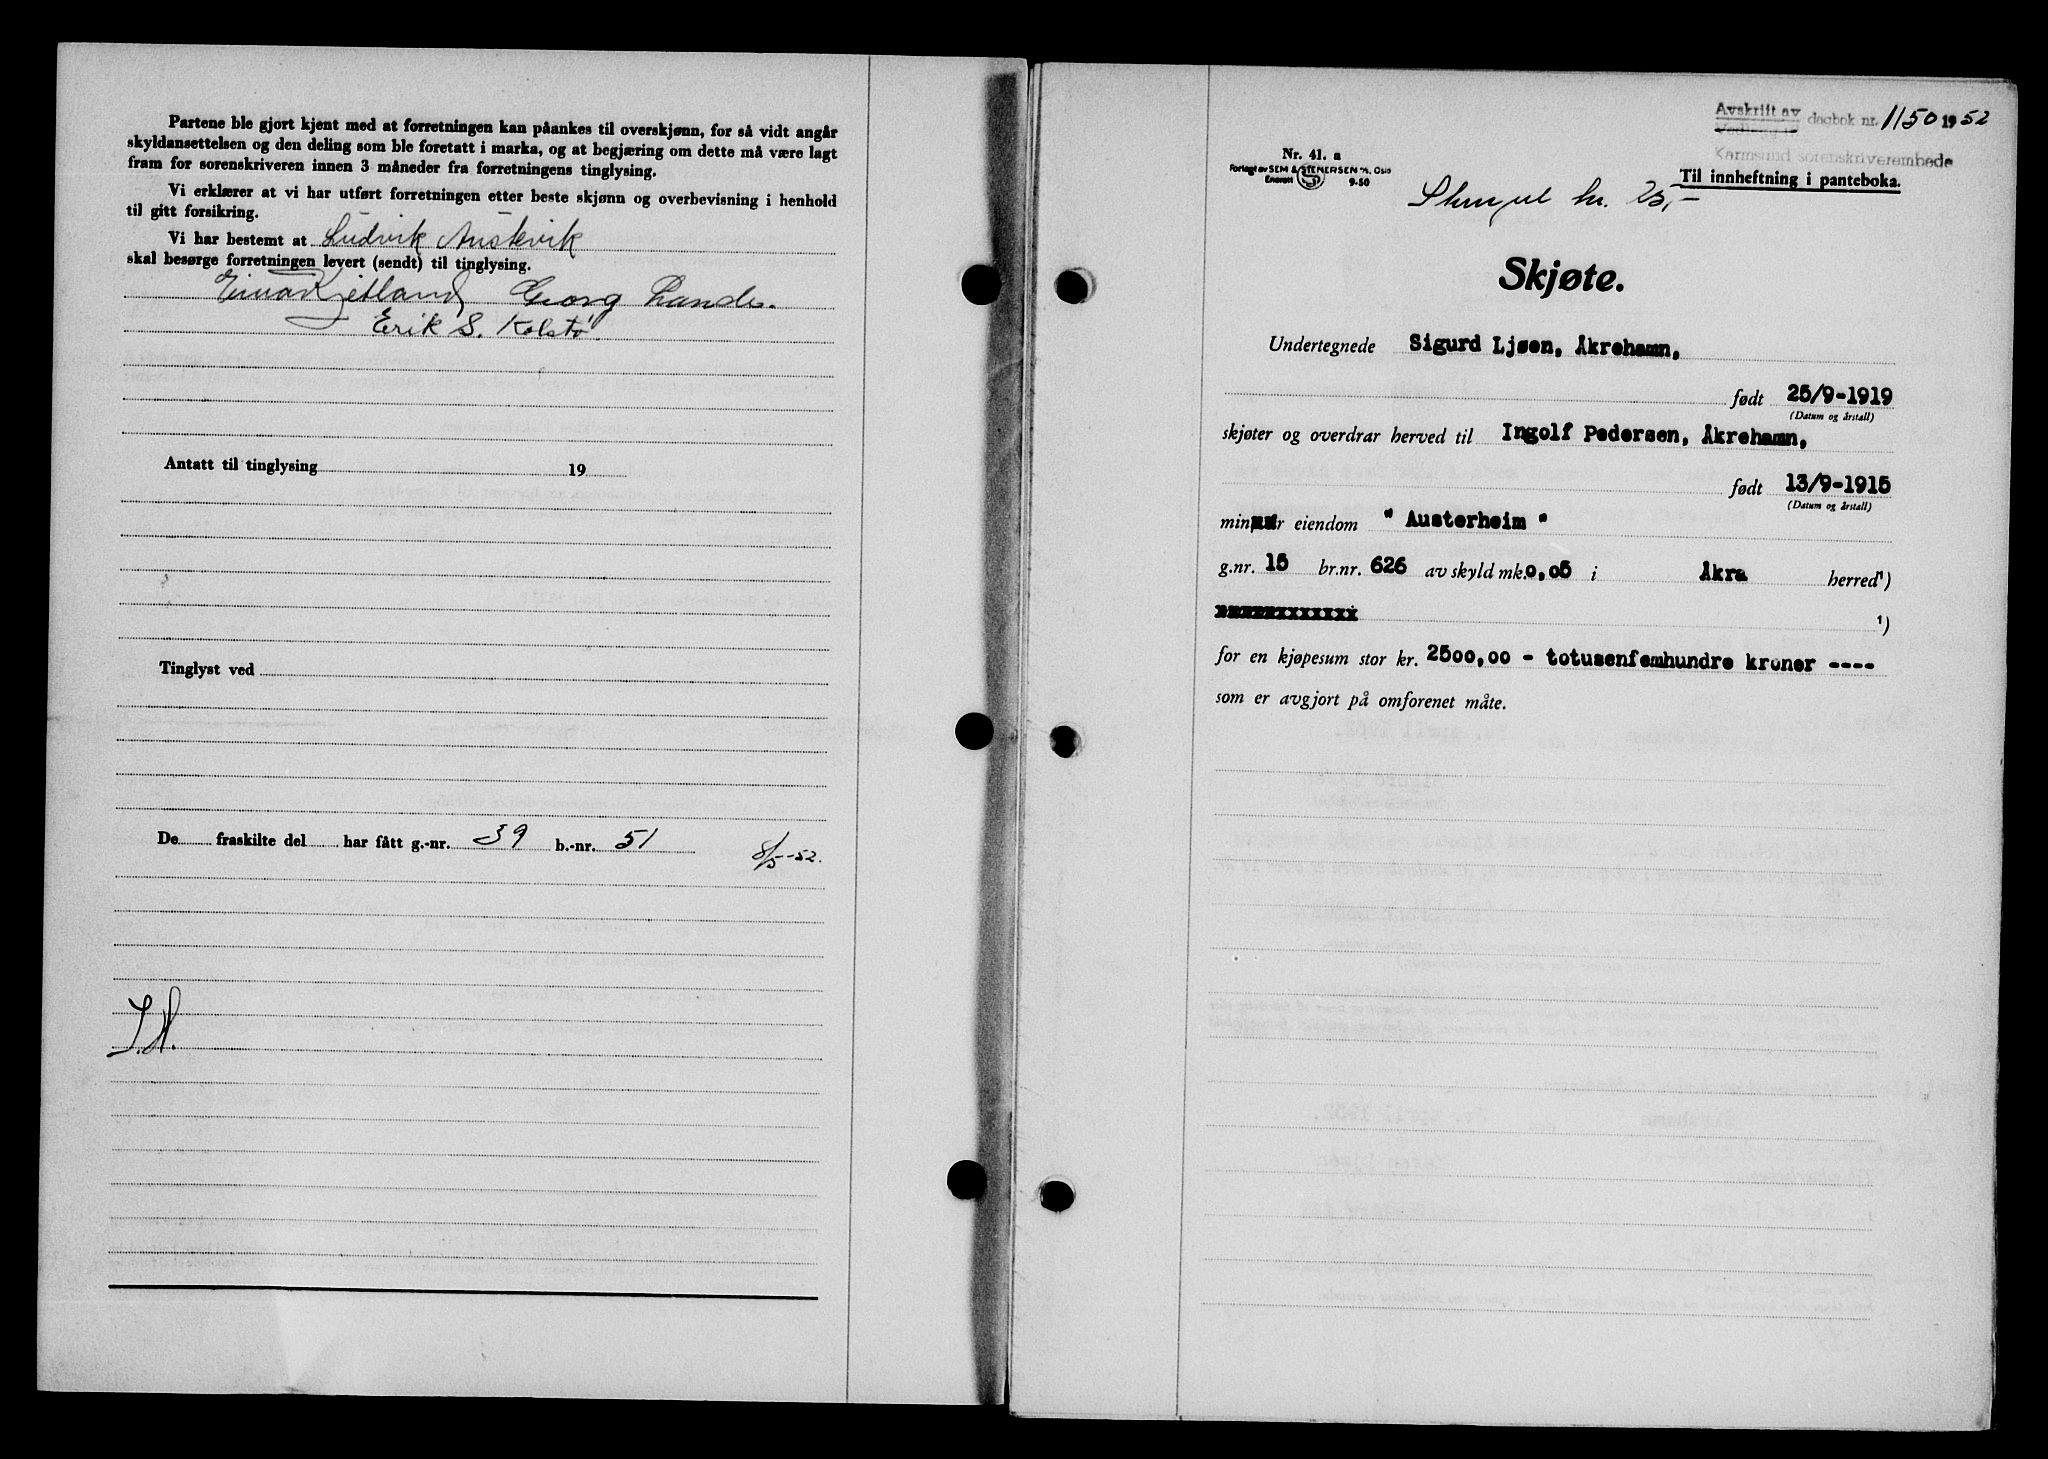 Partene ble gjort kjent med at forretningen kan påankes til overskjønn, for så vidt angår
skyldansettelsen og den deling som ble foretatt i marka, og at begjæring om dette må være lagt
fram for sorenskriveren innen 3 måneder fra forretningens tinglysing.
Vi erklærer at vi har utført forretningen etter beste skjønn og overbevisning i henhold
til gitt forsikring.
Vi har bestemt at Ludvik Austevik
skal besørge forretningen levert (sendt) til tinglysing.
Einar Kjetland Georg Sande.
Erik S. Kolstø.
Antatt til tinglysing 19
Tinglyst ved
De fraskilte del har fått g.-nr. 39 b.-nr. 51 8/5-52.
S.H.
Avskrift av
dagbok nr. 1150 1952
Karmsund sorenskriverembede
Nr. 41. a
Forlagt av SEM & STENERSEN A/S, Oslo
Enerett S 9-50
Til innheftning i panteboka.
Stempel kr. 25,-
Skjøte.
Undertegnede Sigurd Ljøen, Åkrehamn,
født 25/9-1919
(Datum og årstall)
skjøter og overdrar herved til Ingolf Pedersen, Åkrehamn,
født 13/9-1915
(Datum og årstall)
min eiendom " Austerheim "
g.nr. 15 br.nr. 626 av skyld mk. 0,05 i Åkra herred ¹)
xxxxxxxxxxxxx ¹)
for en kjøpesum stor kr. 2500,00 - totusenfemhundre kroner ----
som er avgjort på omforenet måte.